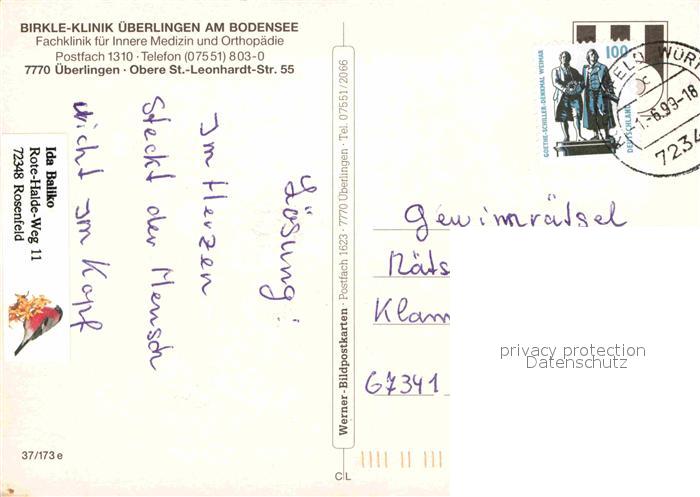 BIRKLE-KLINIK ÜBERLINGEN AM BODENSEE
Fachklinik für Innere Medizin und Orthopädie
Postfach 1310 · Telefon (07551) 803-0
7770 Überlingen · Obere St.-Leonhardt-Str. 55
Lösung:
Im Herzen
steckt der Mensch
nicht im Kopf
Ida Baliko
Rote-Halde-Weg 11
72348 Rosenfeld
Werner-Bildpostkarten · Postfach 1623 · 7770 Überlingen · Tel. 07551/2066
100
GOETHE-SCHILLER-DENKMAL WEIMAR
DEUTSCHLAND
WÜRT
-6.99-18
7234
Gewinnrätsel
Räts
Klam
67341
privacy protection
Datenschutz
37/173 e
C L